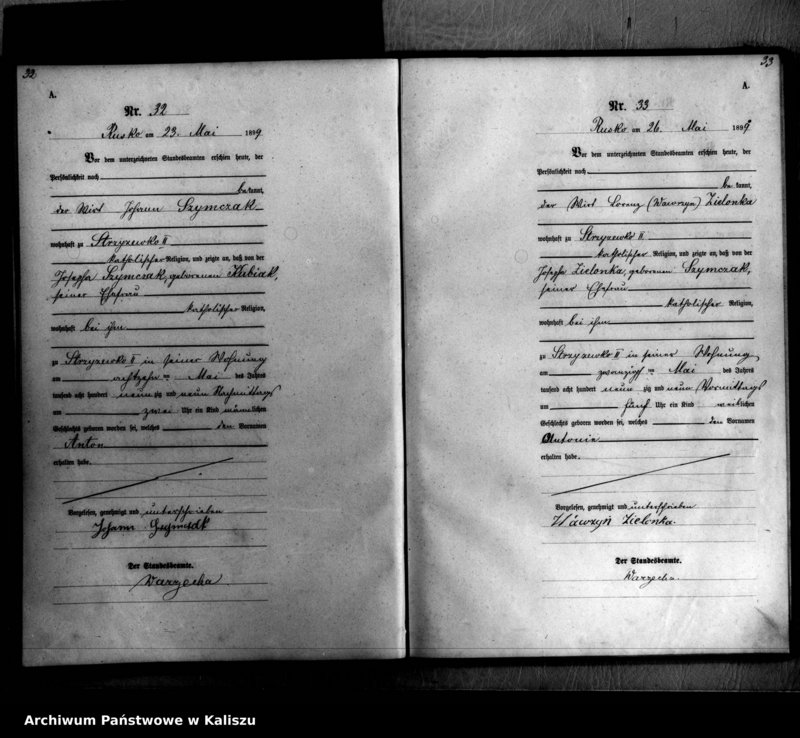 32
A.
Nr. 32
Rusko am 23. Mai 1899
Vor dem unterzeichneten Standesbeamten erschien heute, der
Persönlichkeit nach
be kannt,
der Wirt Johann Szymczak
wohnhaft zu Strzyzewko II
katholischer Religion, und zeigte an, daß von der
Josepha Szymczak, geborenen Kubiak,
seiner Ehefrau
katholischer Religion,
wohnhaft bei ihm
zu Strzyzewko II in seiner Wohnung
am achtzehn ten Mai des Jahres
tausend acht hundert neun zig und neun Nachmittags
um zwei Uhr ein Kind männlichen
Geschlechts geboren worden sei, welches den Vornamen
Anton
erhalten habe.
Vorgelesen, genehmigt und unterschrieben
Johann
Der Standesbeamte.
Warzecha
33
A.
Nr. 33
Rusko am 26. Mai 1899
Vor dem unterzeichneten Standesbeamten erschien heute, der
Persönlichkeit nach
be kannt,
der Wirt Lorenz (Wawrzyn) Zielonka
wohnhaft zu Strzyzewko II
katholischer Religion, und zeigte an, daß von der
Josepha Zielonka, geborenen Szymczak,
seiner Ehefrau
katholischer Religion,
wohnhaft bei ihm
zu Strzyzewko II in seiner Wohnung
am zwanzigsten Mai des Jahres
tausend acht hundert neun zig und neun Vormittags
um fünf Uhr ein Kind weiblichen
Geschlechts geboren worden sei, welches den Vornamen
Antonie
erhalten habe.
Vorgelesen, genehmigt und unterschrieben
Wawrzyn Zielonka.
Der Standesbeamte.
Warzecha.
Archiwum Państwowe w Kaliszu